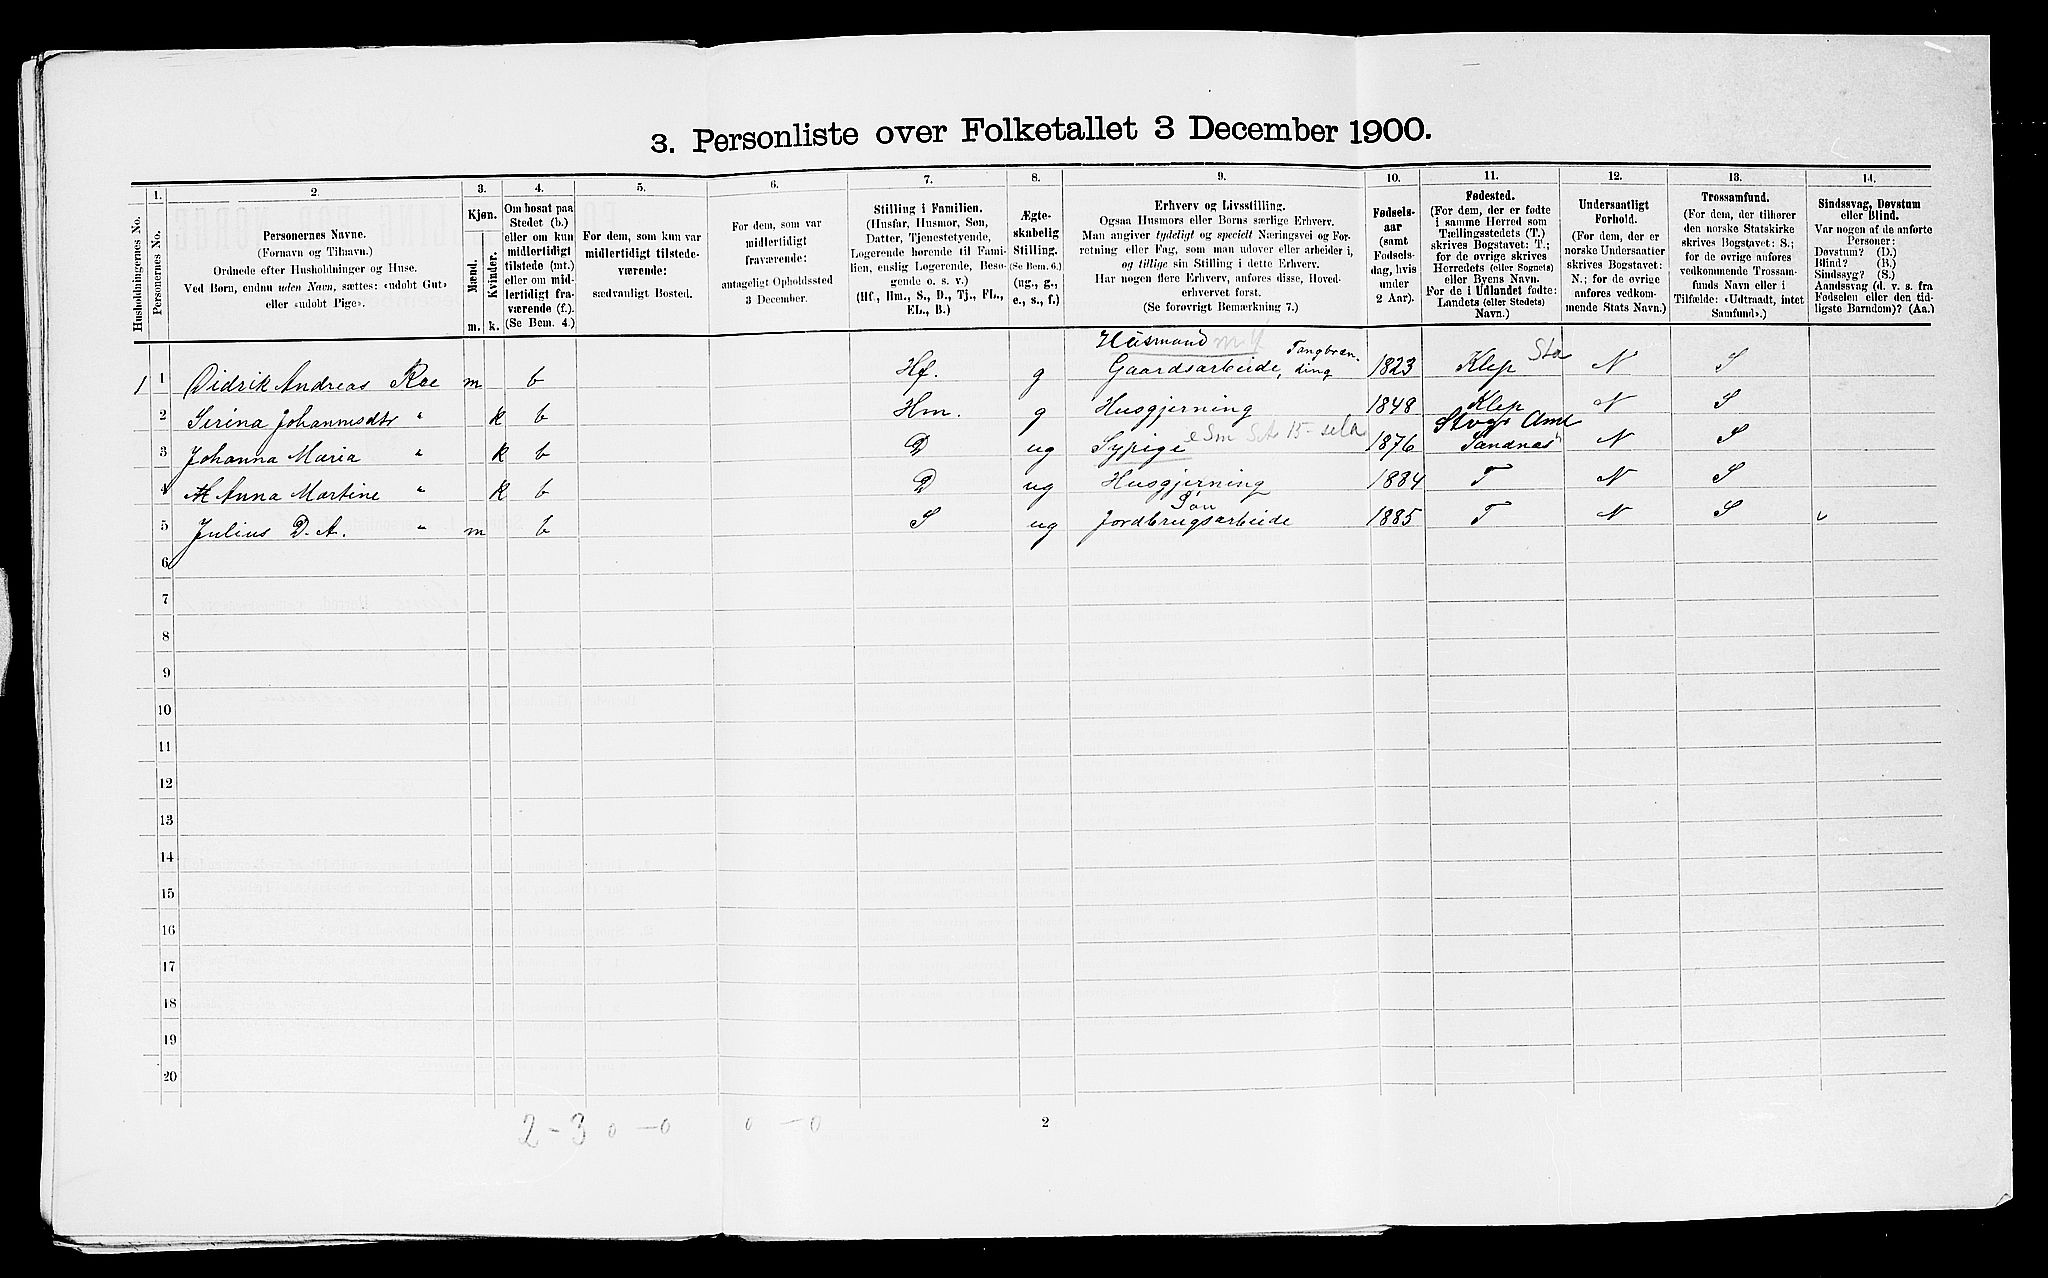 3. Personliste over Folketallet 3 December 1900.
1. 2. 3. 4. 5. 6. 7. 8. 9. 10. 11. 12. 13. 14.
Husholdningernes No.
Personernes No.
Personernes Navne.
(Fornavn og Tilnavn.)
Ordnede efter Husholdninger og Huse.
Ved Børn, endnu uden Navn, sættes: «udøbt Gut»
eller «udøbt Pige».
Kjøn.
Mænd.
Kvinder.
m. k.
Om bosat paa
Stedet (b.)
eller om kun
midlertidigt
tilstede (mt.)
eller om mid-
lertidigt fra-
værende (f.).
(Se Bem. 4.)
For dem, som kun var
midlertidigt tilstede-
værende:
sædvanligt Bosted.
For dem, som var
midlertidigt
fraværende:
antageligt Opholdssted
3 December.
Stilling i Familien.
(Husfar, Husmor, Søn,
Datter, Tjenestetyende,
Logerende hørende til Fami-
lien, enslig Logerende, Besø-
gende o. s. v.)
(Hf., Hm., S., D., Tj., FL.,
EL., B.)
Ægte-
skabelig
Stilling.
(Se Bem. 6.)
(ug., g.,
e., s., f.)
Erhverv og Livsstilling.
Ogsaa Husmors eller Børns særlige Erhverv.
Man angiver tydeligt og specielt Næringsvei og For-
retning eller Fag, som man udøver eller arbeider i,
og tillige sin Stilling i dette Erhverv.
Har nogen flere Erhverv, anføres disse, Hoved-
erhvervet først.
(Se forøvrigt Bemærkning 7.)
Fødsels-
aar
(samt
Fødsels-
dag, hvis
under
2 Aar).
Fødested.
(For dem, der er fødte
i samme Herred som
Tællingsstedets (T.)
skrives Bogstavet: T.;
for de øvrige skrives
Herredets (eller Sognets)
eller Byens Navn.
For de i Udlandet fødte:
Landets (eller Stedets)
Navn.)
Undersaatligt
Forhold.
(For dem, der er
norske Undersaatter
skrives Bogstavet:
N.; for de øvrige
anføres vedkom-
mende Stats Navn.)
Trossamfund.
(For dem, der tilhører
den norske Statskirke
skrives Bogstavet: S.;
for de øvrige anføres
vedkommende Trossam-
funds Navn eller i
Tilfælde: «Udtraadt, intet
Samfund».)
Sindssvag, Døvstum
eller Blind.
Var nogen af de anførte
Personer:
Døvstum? (D.)
Blind? (B.)
Sindssyg? (S.)
Aandssvag (d. v. s. fra
Fødselen eller den tid-
ligste Barndom)? (Aa.)
Husmand m J
1 1 Didrik Andreas Roe m b Hf. g Gaardsarbeide, Tangbræn-ding 1823 Klep Sta N S
2 Serina Johannesdtr " k b Hm. g Husgjerning 1848 Klep N S
3 Johanna Maria " k b D ug Sypige 1876 Stvgr Amt Sandnes N S
4 Anna Martine " k b D ug Husgjerning 1884 T N S
Søn
5 Julius D. A. " m b S ug Jordbrugsarbeide 1885 T N S
6
7
8
9
10
11
12
13
14
15
16
17
18
19
20
2 - 3 0 - 0 0 - 0 2